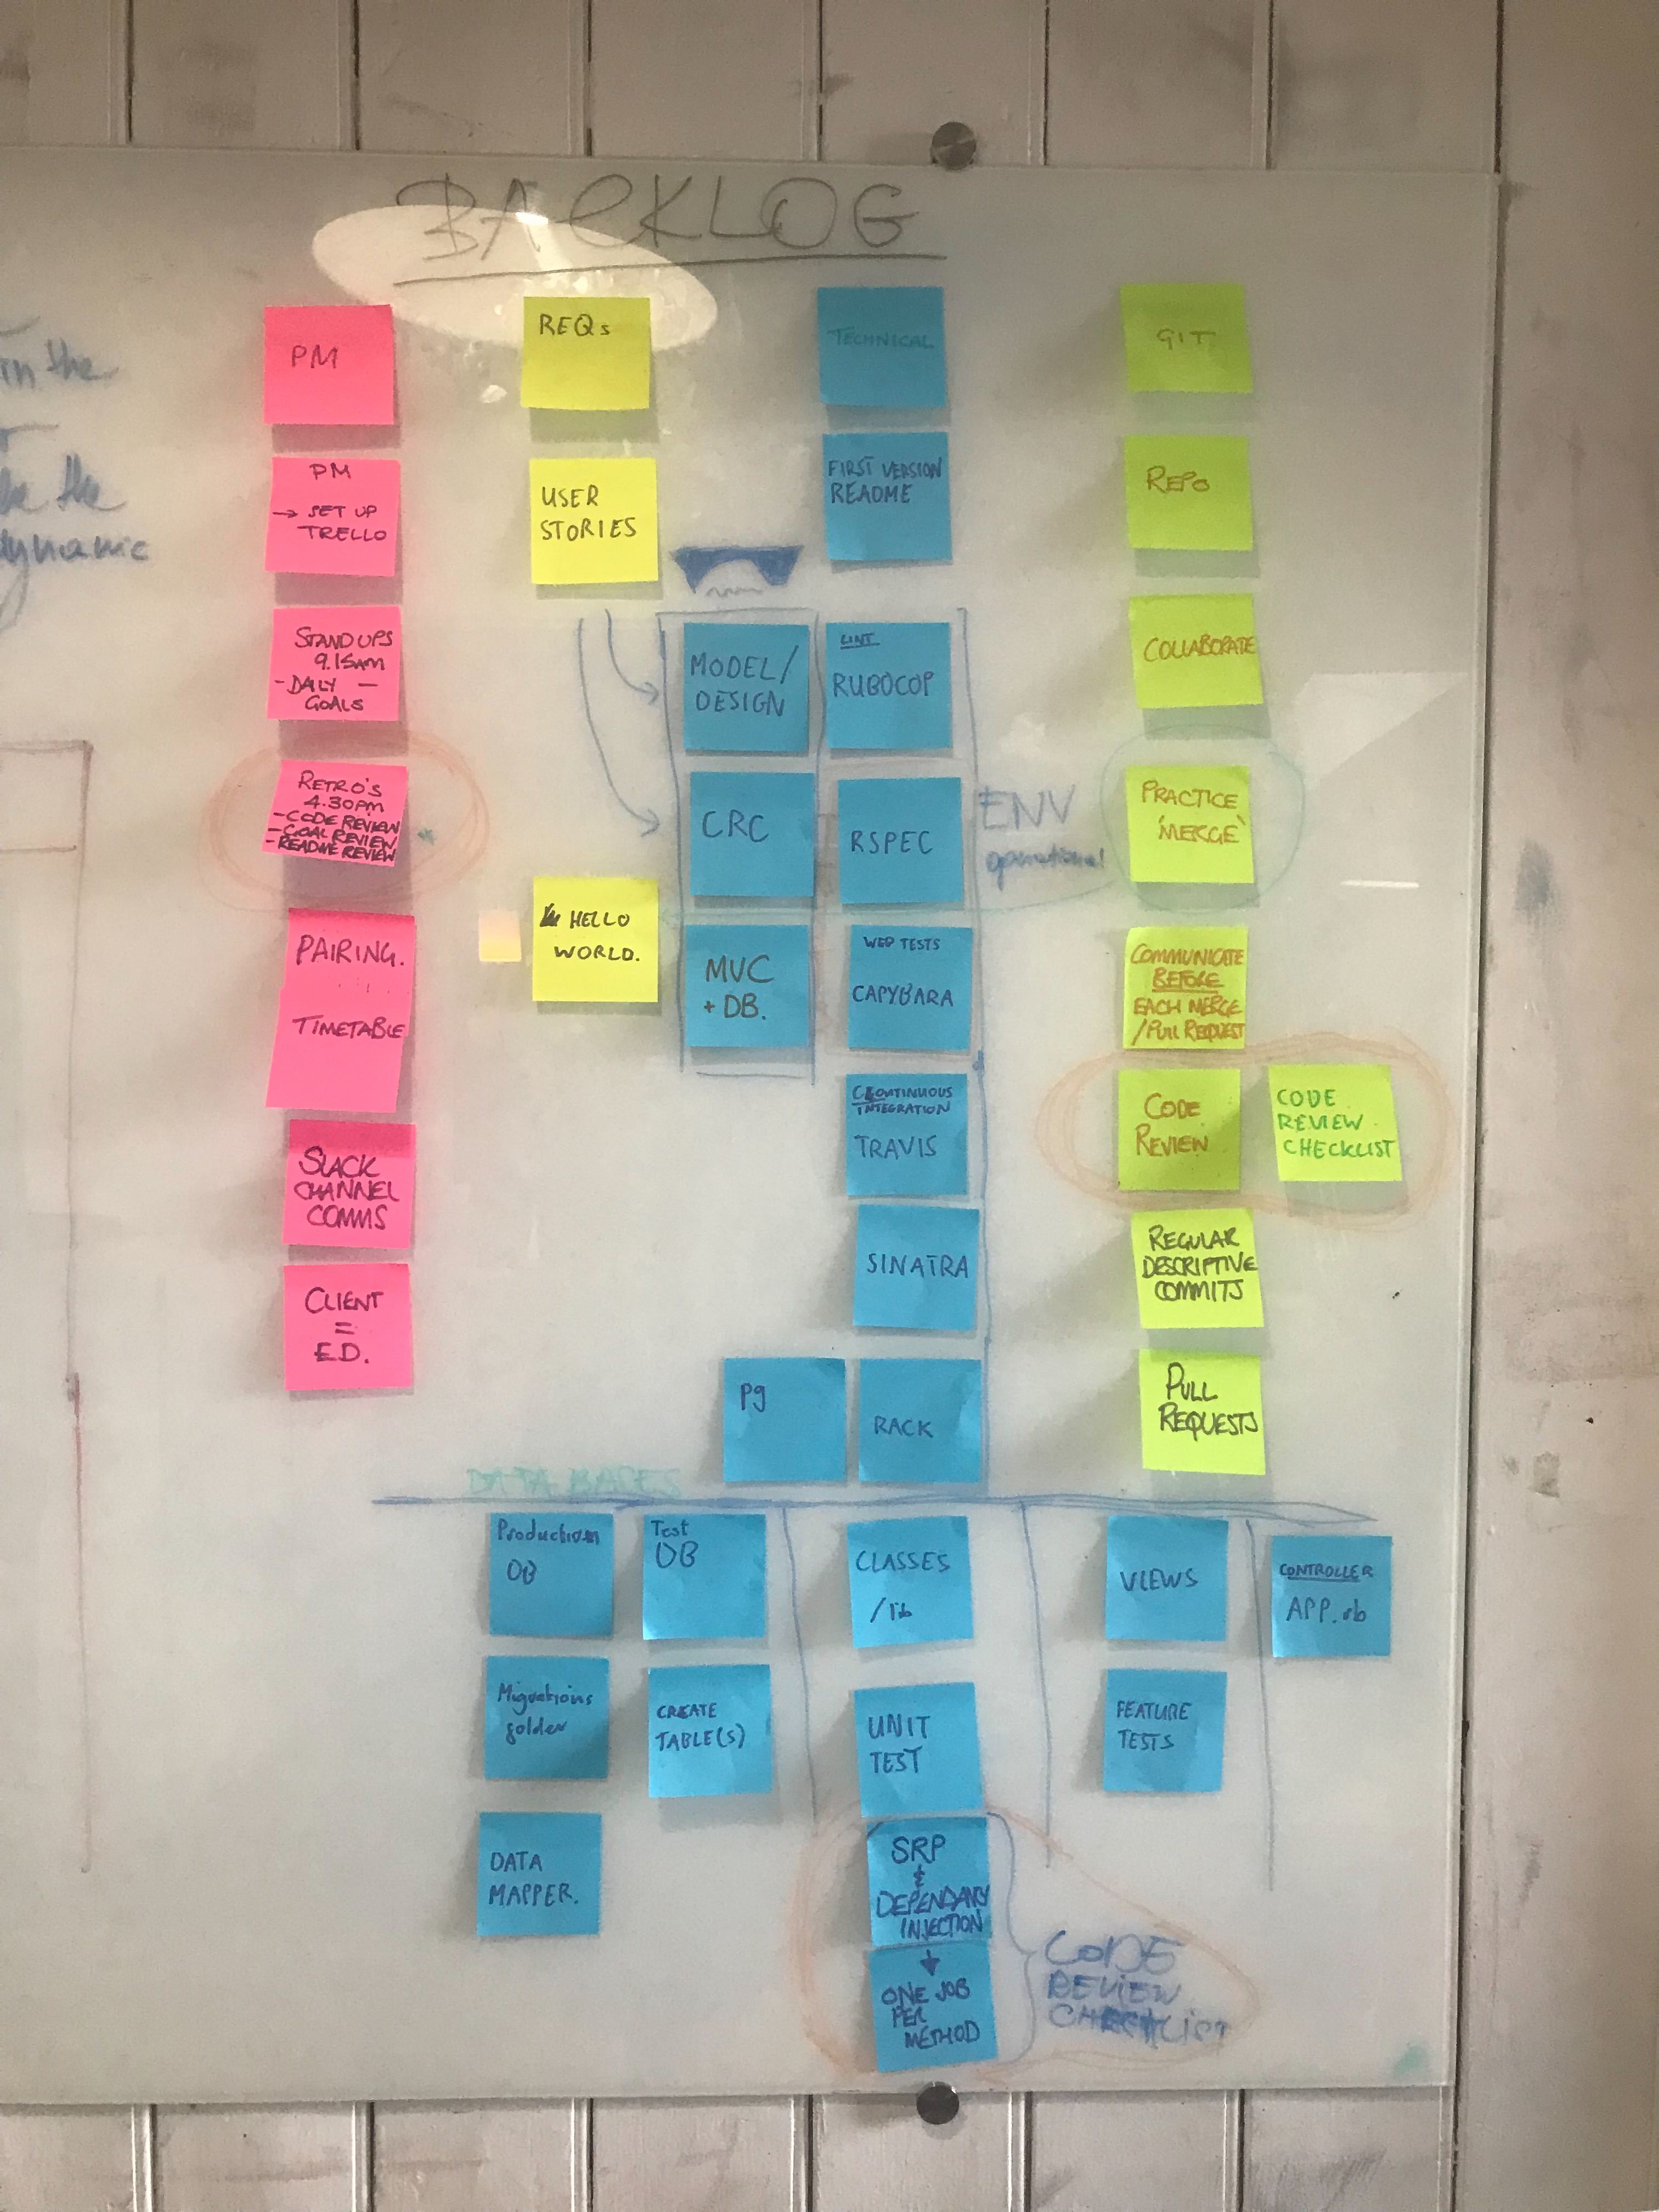 BACKLOG
in the
the
dynamic
PM
PM
→ SET UP
TRELLO
STAND UPS
9.15AM
- DAILY -
GOALS
RETRO'S
4.30PM
- CODE REVIEW
- GOAL REVIEW
- README REVIEW
PAIRING.
TIMETABLE
SLACK
CHANNEL
COMMS
CLIENT
=
E.D.
REQs
USER
STORIES
HELLO
WORLD.
TECHNICAL
FIRST VERSION
README
MODEL/
DESIGN
CRC
MVC
+ DB.
LINT
RUBOCOP
RSPEC
WEB TESTS
CAPYBARA
CONTINUOUS
INTEGRATION
TRAVIS
SINATRA
pg
RACK
ENV
operational
GIT
REPO
COLLABORATE
PRACTICE
'MERGE'
COMMUNICATE
BEFORE
EACH MERGE
/PULL REQUEST
CODE
REVIEW
CODE
REVIEW
CHECKLIST
REGULAR
DESCRIPTIVE
COMMITS
PULL
REQUESTS
DATABASES
Production
DB
Test
DB
Migrations
folder
CREATE
TABLE(S)
DATA
MAPPER.
CLASSES
/lib
UNIT
TEST
SRP
&
DEPENDANCY
INJECTION
↓
ONE JOB
PER
METHOD
CODE
REVIEW
CHECKLIST
VIEWS
FEATURE
TESTS
CONTROLLER
APP.rb